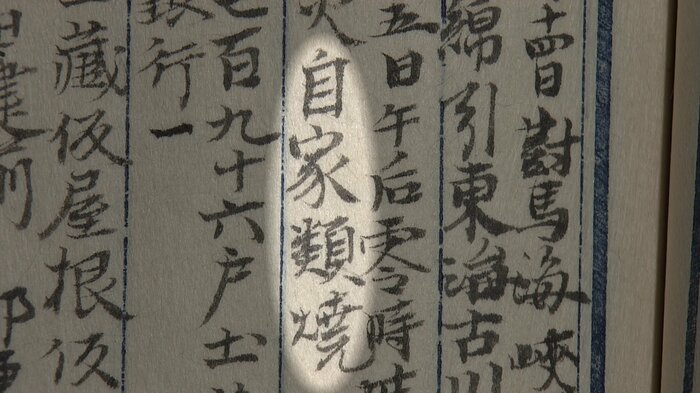 十四日對馬海峽
綿引東海古川
五日午后零時
自家類燒
七百九十六戸土
銀行一
土藏仮屋根仮